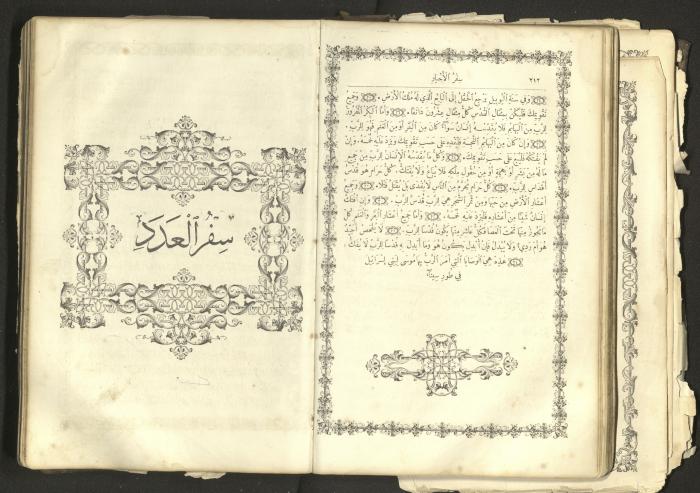 ٢١٢
سفر الأحبار
وفي سنة اليوبيل يرجع الحقل إلى البائع الذي له ملك الأرض. وجميع
تقويمك فليكن بمثقال القدس كل مثقال عشرون دانقا. وأما البكر المفروز
للرب من البهائم فلا يقدسه إنسان سواء كان من البقر أو من الغنم فهو للرب.
وإن كان من البهائم النجسة فليفده على حسب تقويمك ويزد عليه خمسه وإن
لم يفتكه فليبع على حسب تقويمك. وكل ما يقدسه الإنسان للرب من جميع
ما له من بشر أو بهيمة أو من حقول ملكه فلا يباع ولا يفتك. كل حرام هو قدس
أقداس للرب. كل حرام يحرم من الناس لا يفدى بل يقتل قتلا. وجميع
أعشار الأرض من حبها ومن ثمر الشجر هي للرب قدس للرب. وإن افتك
إنسان شيئا من أعشاره فليزد عليه خمسه. وأما جميع أعشار البقر والغنم كل
ما يجوز منها تحت العصا فكل عاشر منها يكون قدسا للرب. لا يفحص أجيد
هو أم ردي ولا يبدل فإن أبدل يكون هو وما أبدل به قدسا للرب لا يفك.
هذه هي الوصايا التي أمر الرب بها موسى لبني إسرائيل
في طور سيناء
سفر العدد